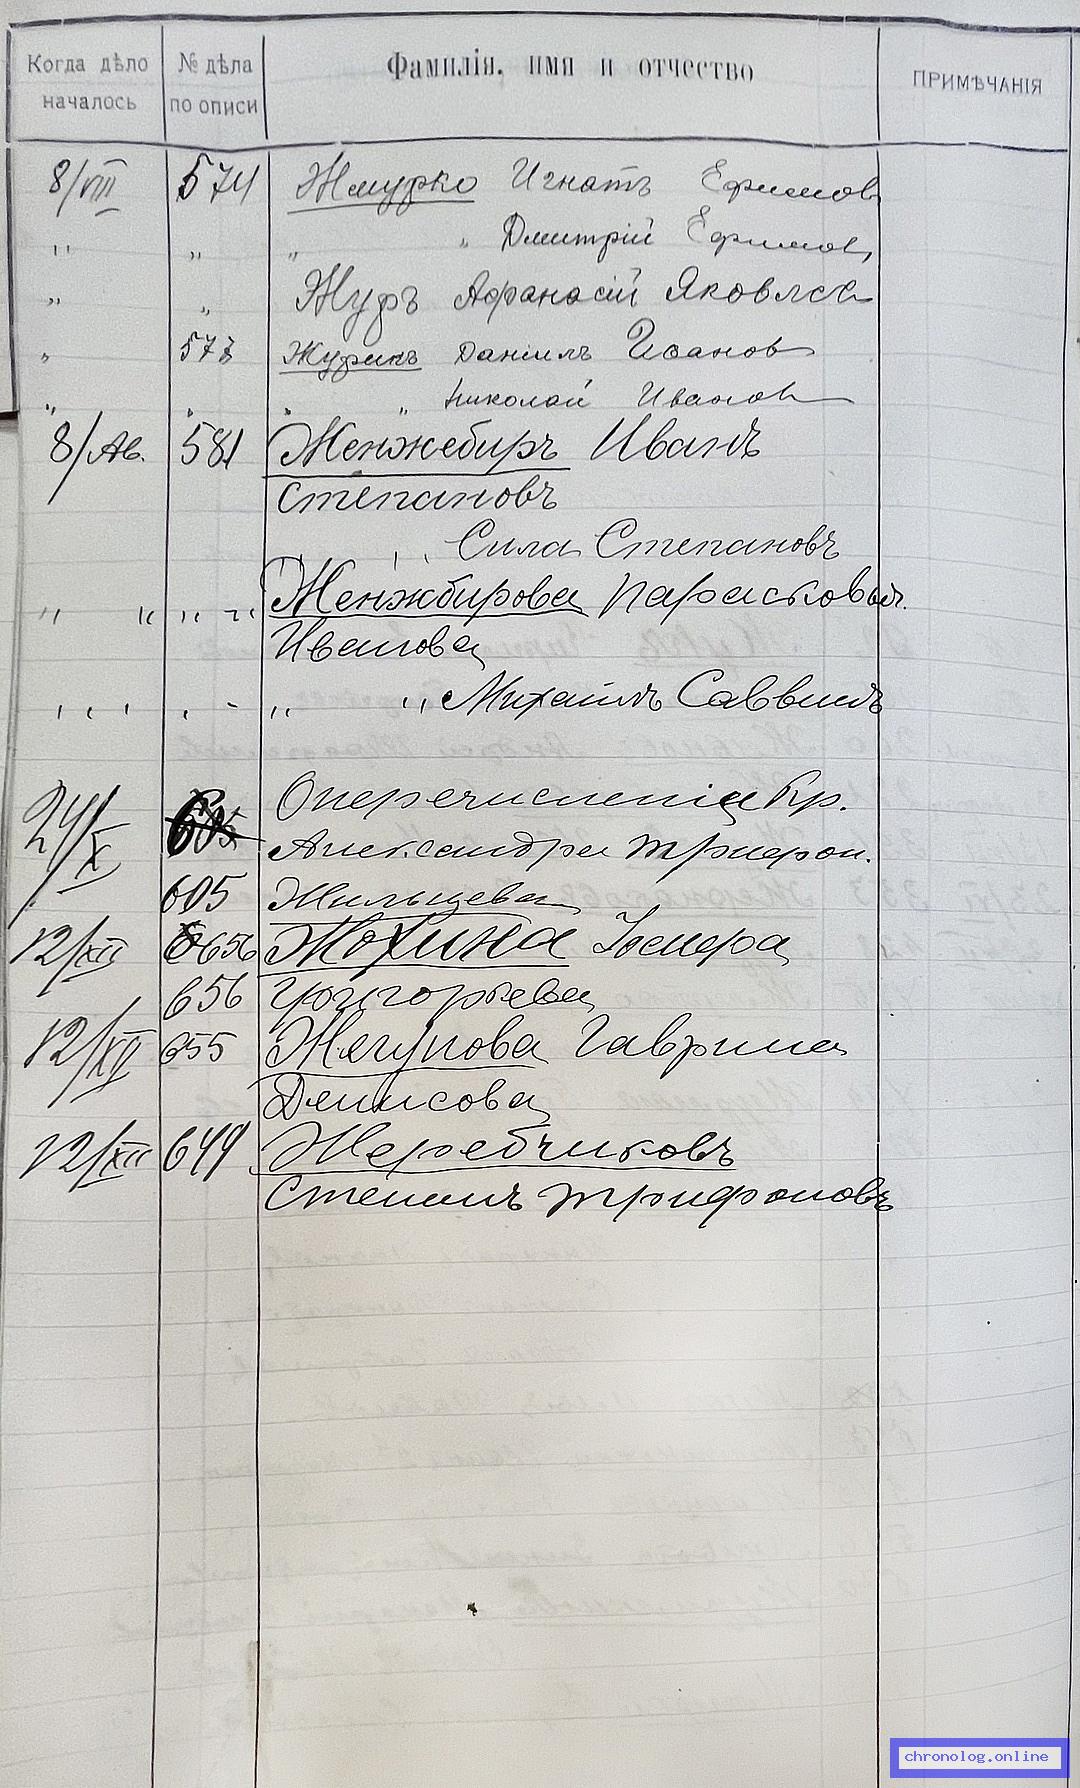 Когда дѣло началось № дѣла по описи Фамилія, имя и отчество ПРИМѢЧАНІЯ
8/VIII 574 Жмурко Игнатъ Ефимов
" " " " Дмитрій Ефимов
" " Журъ Афанасій Яковлев
" 577 Журикъ Даніилъ Иванов
" " " " Николай Иванов
8/Ав. 581 Женжебиръ Иванъ
Степановъ
" " Сила Степановъ
" " " " Женжбирова Парасковья
Иванова
" " " " " " Михаилъ Саввинъ
24/X 605 О перечисленіи кр.
Александра Трифон.
605 Жильцева
12/XII 656 Жохина
656 Григорьева
12/XII 655 Жягунова Гаврила
Денисова
12/XII 649 Жеребчиковъ
Степанъ Трифоновъ
chronolog.online